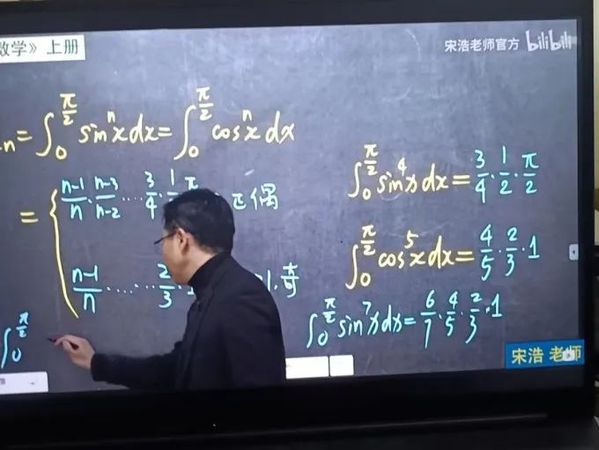 数学》上册
宋浩老师官方 bilibili
n = ∫₀^(π/2) sinⁿx dx = ∫₀^(π/2) cosⁿx dx
= { (n-1)/n · (n-3)/(n-2) ··· 3/4 · 1/2 · π/2 正偶
(n-1)/n · ··· · 2/3 · 奇
∫₀^(π/2) sin⁴x dx = 3/4 · 1/2 · π/2
∫₀^(π/2) cos⁵x dx = 4/5 · 2/3 · 1
∫₀^(π/2) sin⁷x dx = 6/7 · 4/5 · 2/3 · 1
∫₀^(π/2)
宋浩 老师